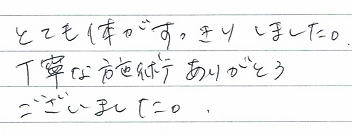 とても体がすっきりしました。
丁寧な施術ありがとう
ございました。